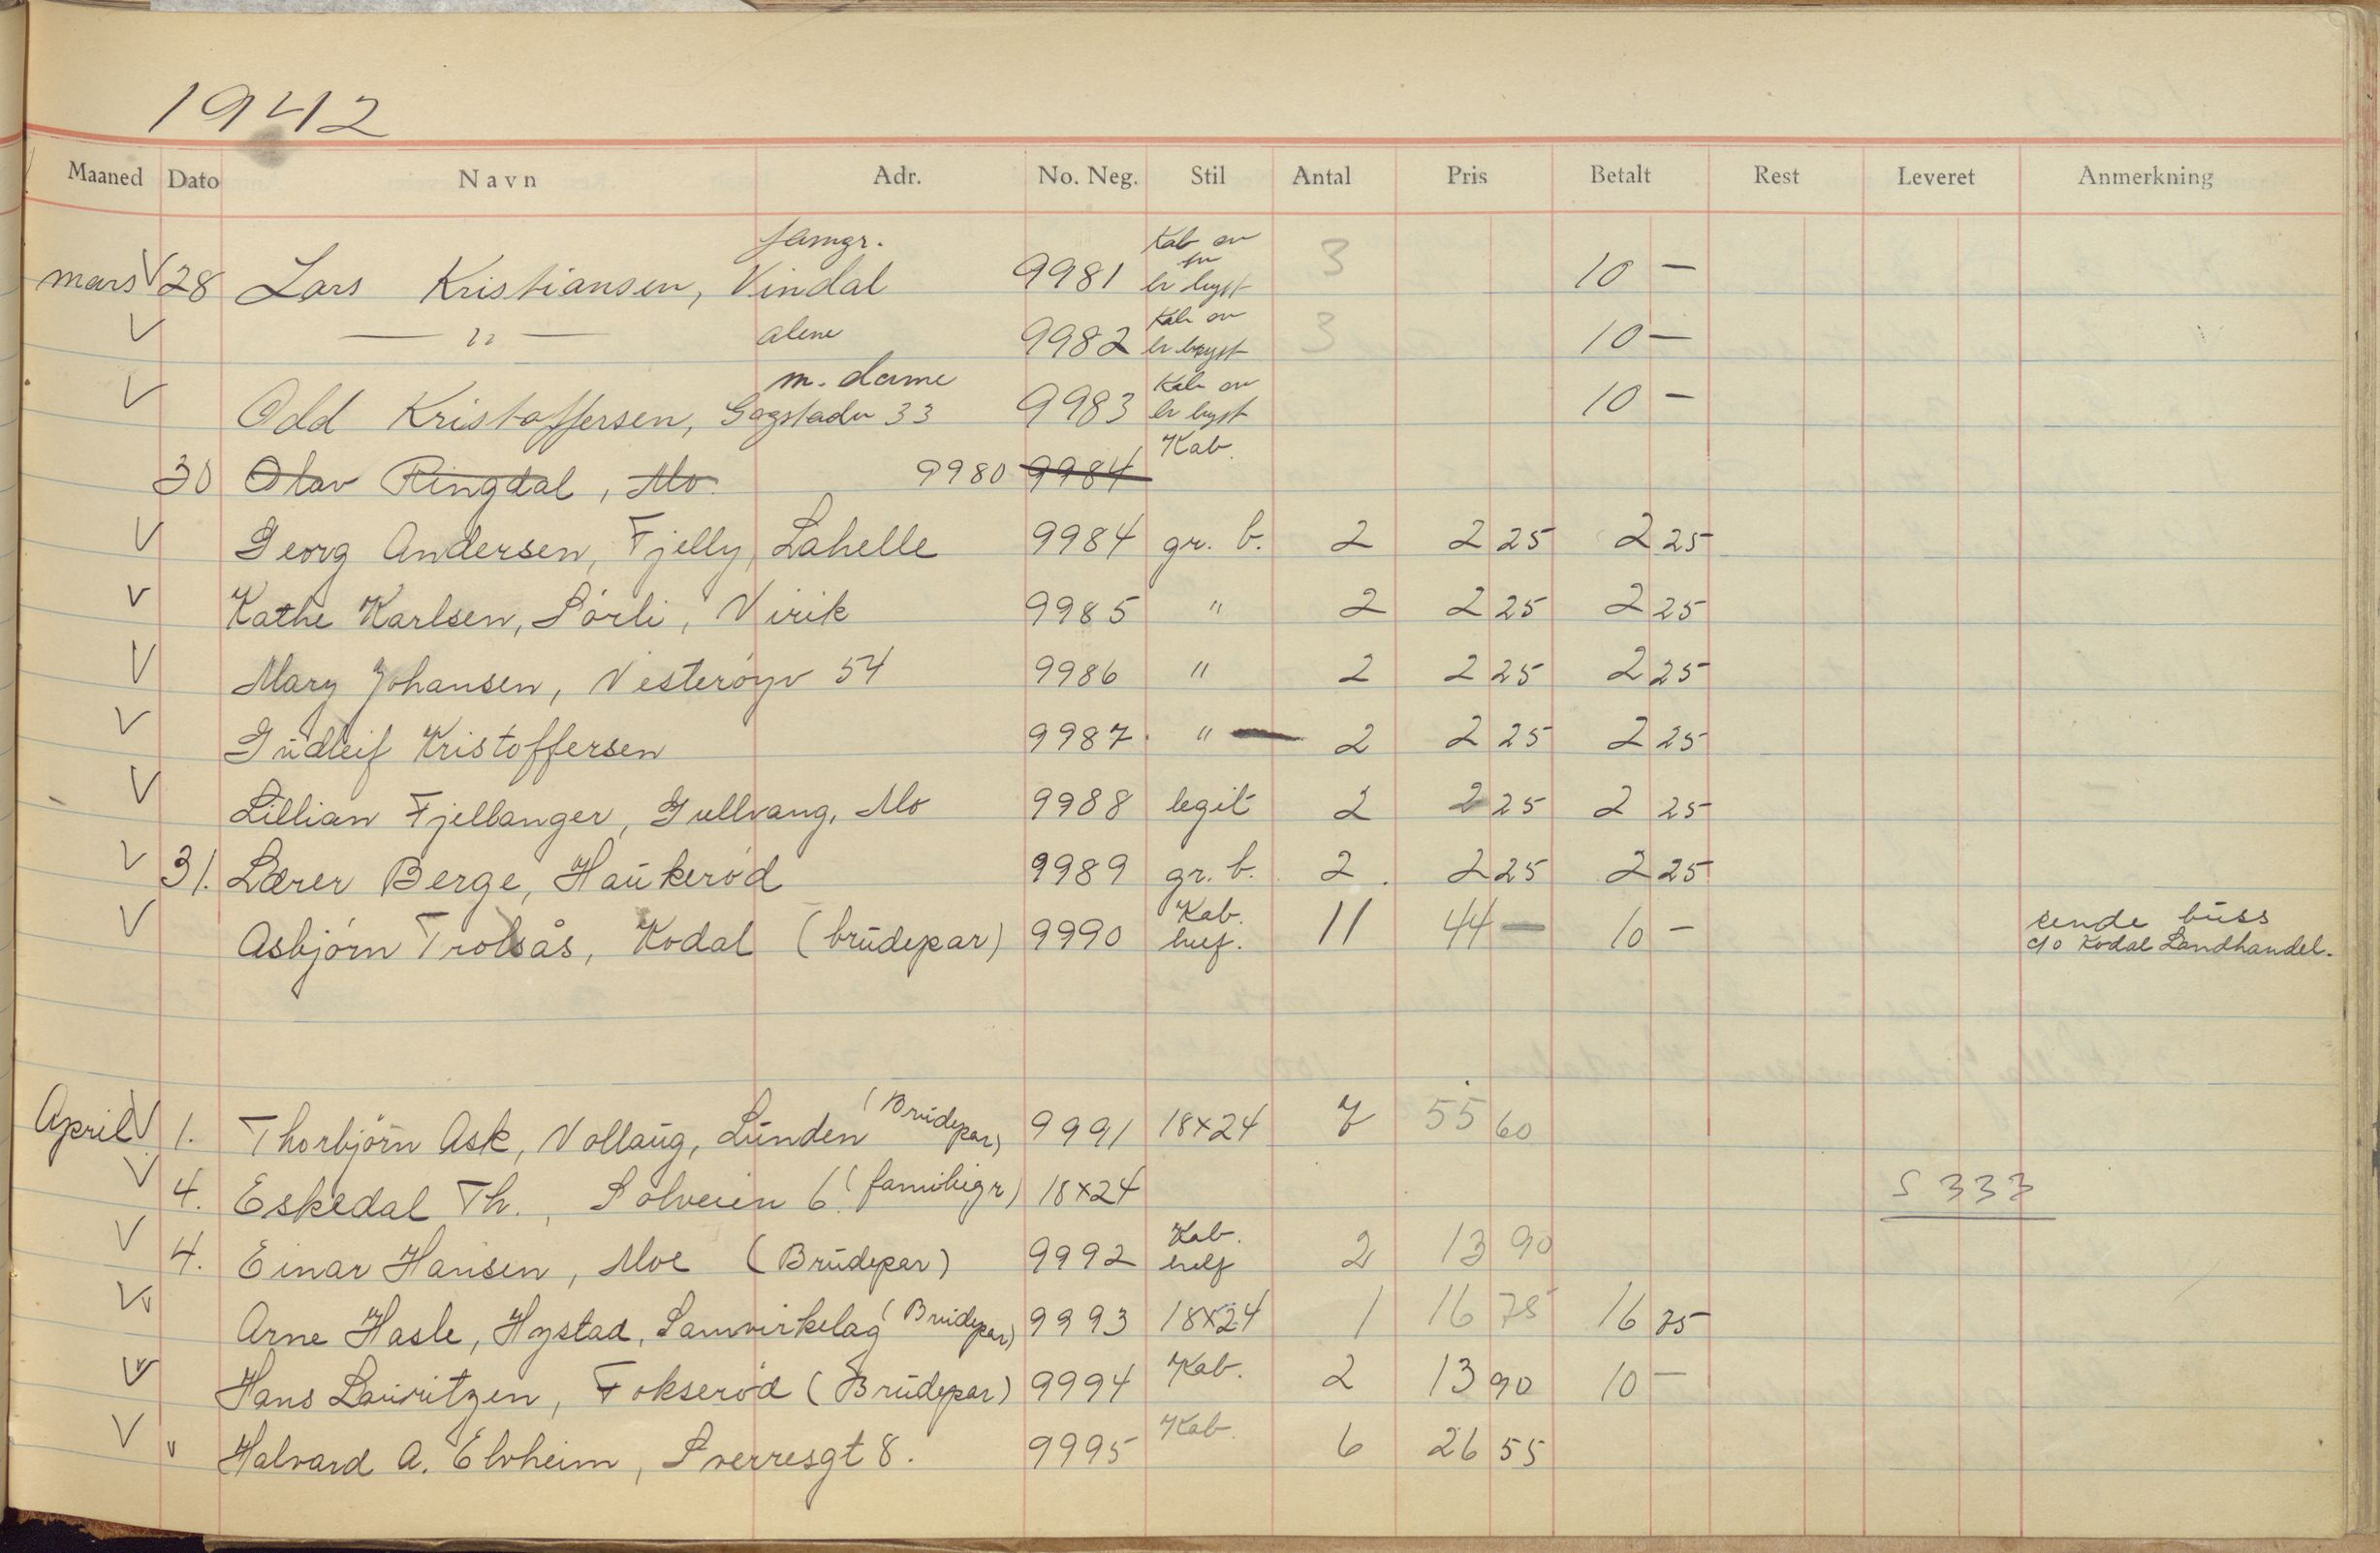 1942
Maaned Dato Navn Adr. No. Neg. Stil Antal Pris Betalt Rest Leveret Anmerkning
famgr. Kab en
mars V 28 Lars Kristiansen, Vindal 9981 er bryst 3 10 —
V — " — alene 9982 Kab en er bryst 3 10 —
m. dame Kab en
V Odd Kristoffersen, Gogstadv 33 9983 er bryst 10 —
30 Olav Ringdal, Mo 9980 9984 Kab.
V Georg Andersen, Fjelly, Lahelle 9984 gr. b. 2 2 25 2 25
V Kathe Karlsen, Sörli, Virik 9985 " 2 2 25 2 25
V Mary Johansen, Vesteröyv 54 9986 " 2 2 25 2 25
V Gudleif Kristoffersen 9987 " — 2 2 25 2 25
V Lillian Fjellanger, Gullvang, Mo 9988 legit 2 2 25 2 25
V 31. Lærer Berge, Haukeröd 9989 gr. b. 2. 2 25 2 25
V Asbjörn Trolsås, Kodal (brudepar) 9990 Kab. 11 44 — 10 — sende buss
c/o Kodal Landhandel.
April V 1. Thorbjörn Ask, Vollaug, Lunden (Brudepar) 9991 18x24 7 55 60
V 4. Eskedal Th., Solveien 6. (familiegr) 18x24 S 333
V 4. Einar Hansen, Moe (Brudepar) 9992 Kab. 2 13 90
V Arne Hasle, Hystad, Samvirkelag (Brudepar) 9993 18x24 1 16 75 16 75
V Hans Lauritzen, Fokseröd (Brudepar) 9994 Kab. 2 13 90 10 —
V " Halvard A. Elvheim, Sverresgt 8. 9995 Kab. 6 26 55